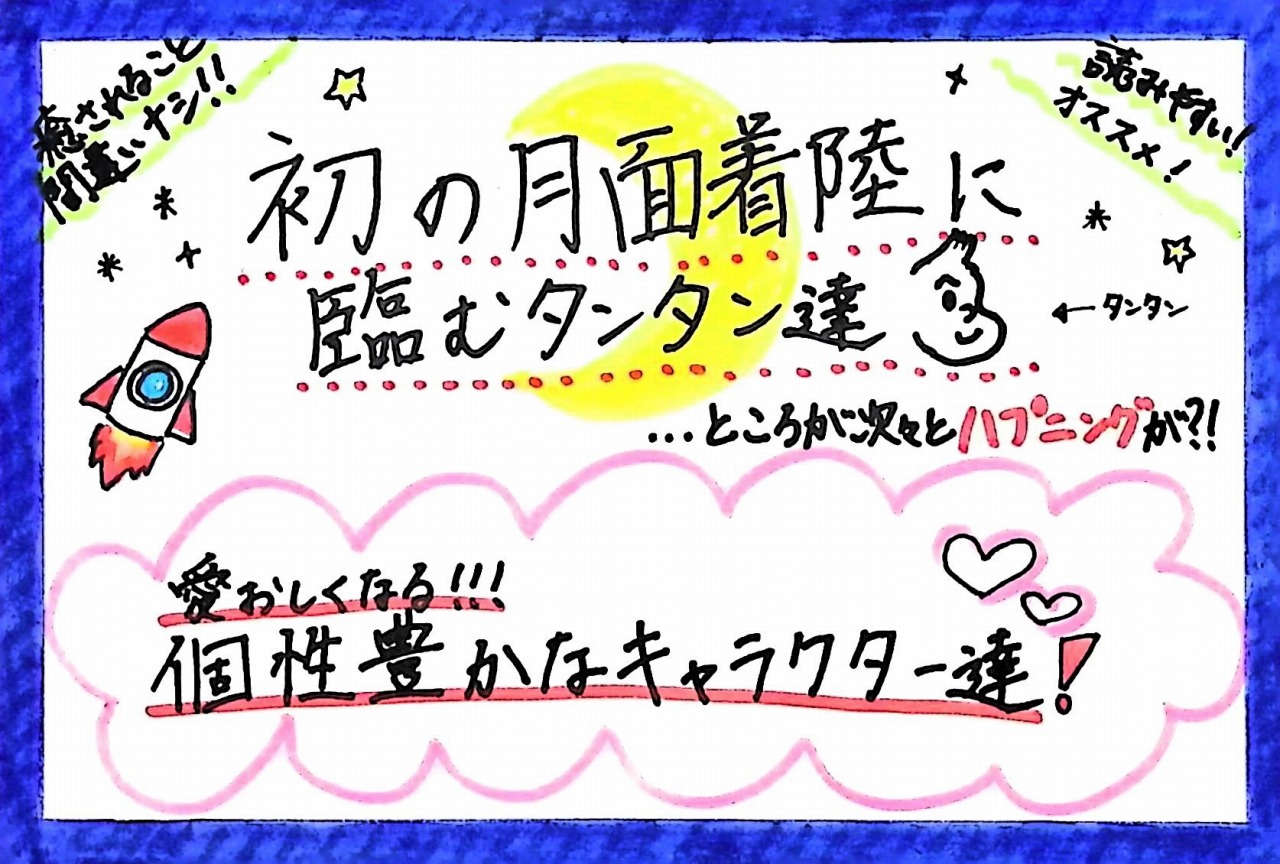 癒されること
間違いナシ!!
読みやすい!
オススメ!
初の月面着陸に
臨むタンタン達
←タンタン
...ところが次々とハプニングが?!
愛おしくなる!!!
個性豊かなキャラクター達!